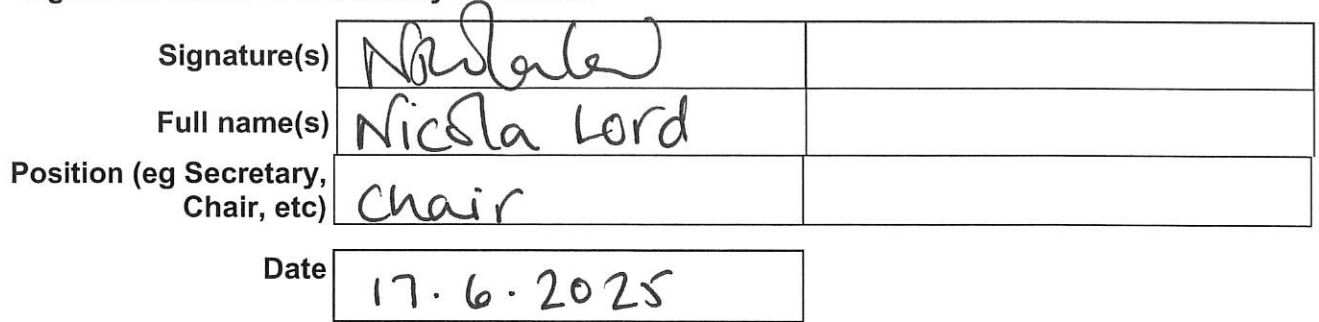 Signature(s)
Full name(s) Nicola Lord
Position (eg Secretary,
Chair, etc) Chair
Date 17.6.2025